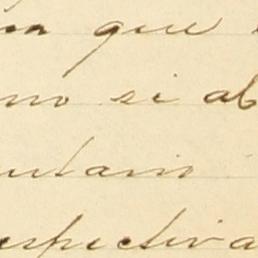 que
no si ab
utario
espectiva